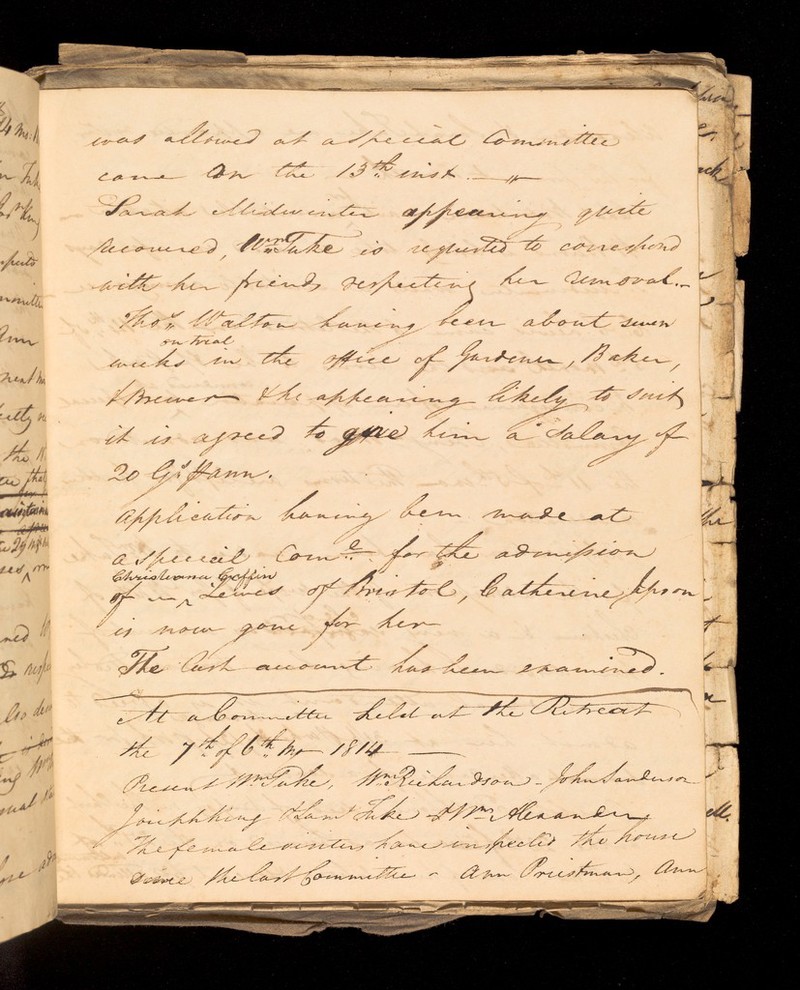 was allowed at a Special Committee
came on the 13th inst.
Sarah Midwinter appearing quite
recovered, Wm Tuke is requested to correspond
with her friends respecting her removal.
Thos Walton having been about seven
on trial
weeks in the office of Gardener, Baker,
& Brewer & he appearing likely to suit
it is agreed to give him a Salary of
20 Gs ann.
Application having been made at
a special Come for the admission
Christiana
of Lewis of Bristol, Catherine Jepson
is now gone for her
The Cash account has been examined.
At a Committee held at the Retreat
the 7th of 6th Mo 1814
Present Wm Tuke, Wm Richardson - John Sanderson
Joseph King & Saml Tuke & Wm Alexander
The female visitors have inspected the house
since the last Committee - Ann Priestman, Ann